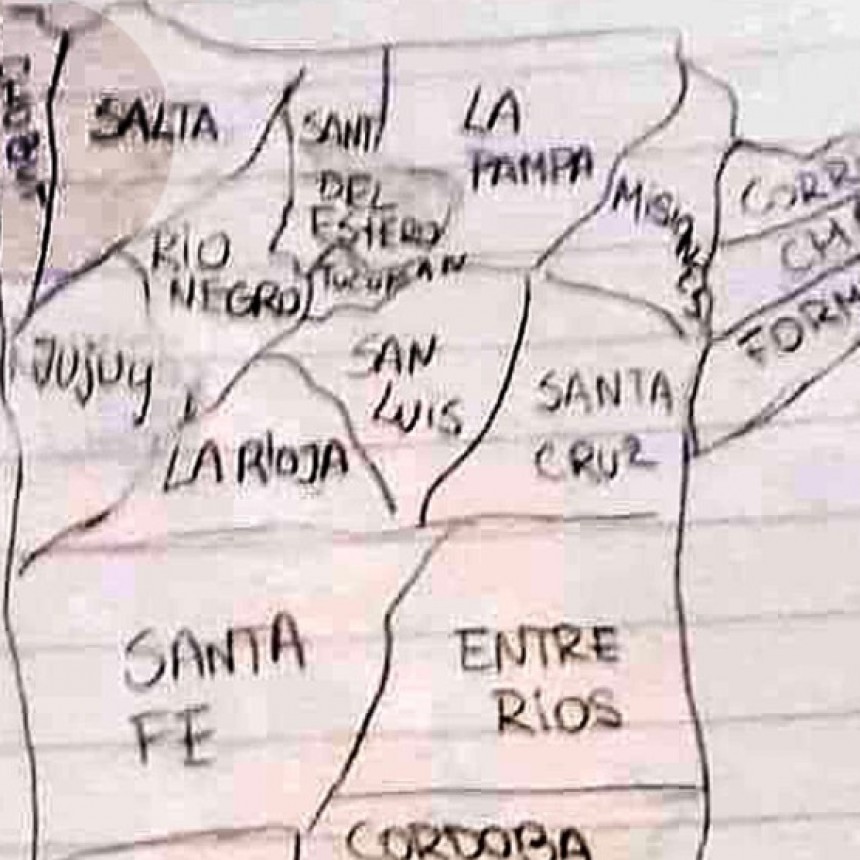 SALTA
SANT
DEL
ESTERO
LA
PAMPA
MISIONES
CORR
CHA
FORM
RÍO
NEGRO
TUCUMAN
JUJUY
SAN
LUIS
SANTA
CRUZ
LA RIOJA
SANTA
FE
ENTRE
RÍOS
CORDOBA